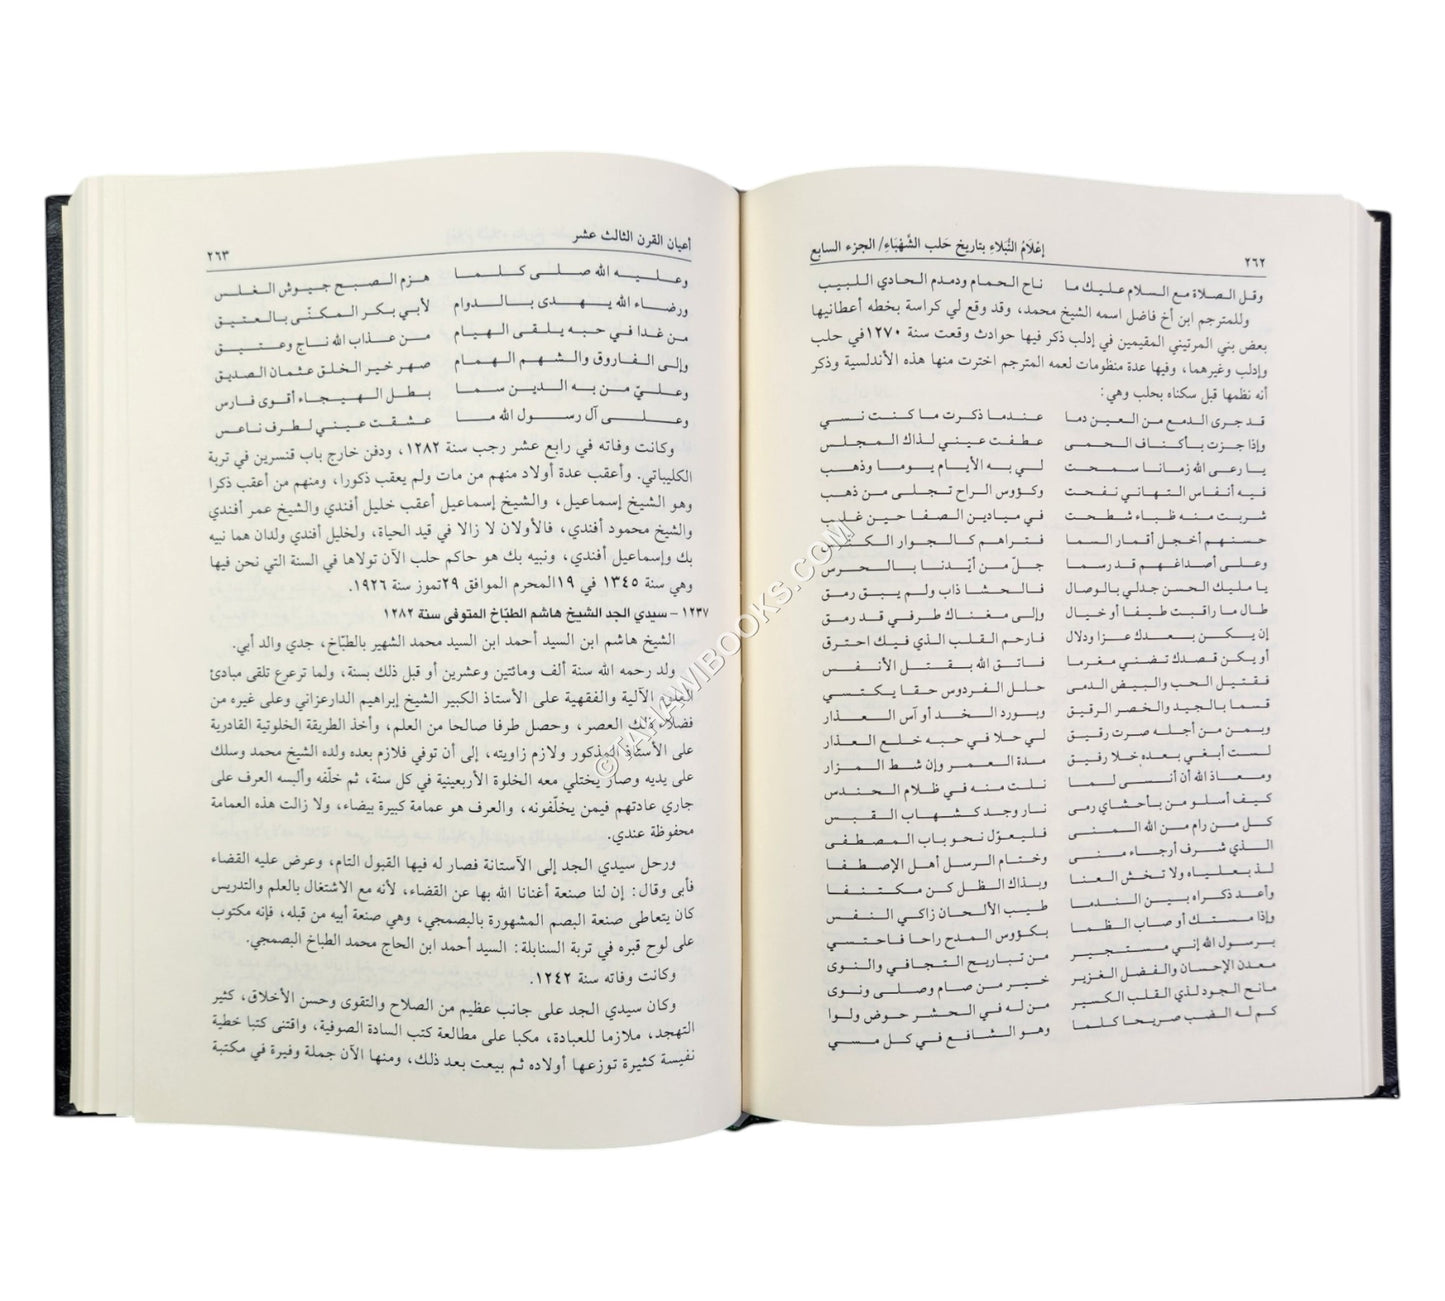 ٢٦٢ إعْلَامُ النُّبَلاءِ بتاريخ حَلب الشَّهْبَاءِ/ الجزء السابع
وقل الصلاة مع السلام عليك ما ناح الحمام ودمدم الحادي اللبيب
وللمترجم ابن أخ فاضل اسمه الشيخ محمد، وقد وقع لي كراسة بخطه أعطانيها
بعض بني المرتيني المقيمين في إدلب ذكر فيها حوادث وقعت سنة ١٢٧٠في حلب
وإدلب وغيرهما، وفيها عدة منظومات لعمه المترجم اخترت منها هذه الأندلسية وذكر
أنه نظمها قبل سكناه بحلب وهي:
قد جرى الدمع من العين دما عندما ذكرت ما كنت نسي
وإذا جزت بأكناف الحمى عطفت عيني لذاك المجلس
يا رعى الله زمانا سمحت لي به الأيام يوما وذهب
فيه أنفاس التهاني نفحت وكؤوس الراح تجلى من ذهب
شربت منه ظباء شطحت في ميادين الصفا حين غلب
حسنهم أخجل أقمار السما فتراهم كالجوار الكنس
وعلى أصداغهم قد رسما جلّ من أيّدنا بالحرس
يا مليك الحسن جدلي بالوصال فالحشا ذاب ولم يبق رمق
طال ما راقبت طيفا أو خيال وإلى مغناك طرفي قد رمق
إن يكن بعدك عزا ودلال فارحم القلب الذي فيك احترق
أو يكن قصدك تضني مغرما فاتق الله بقتل الأنفس
فقتيل الحب والبيض الدمى حلل الفردوس حقا يكتسي
قسما بالجيد والخصر الرقيق وبورد الخد أو آس العذار
وبمن من أجله صرت رقيق لي حلا في حبه خلع العذار
لست أبغي بعده خلا رفيق مدة العمر وإن شط المزار
ومعاذ الله أن أنسى لما نلت منه في ظلام الحندس
كيف أسلو من بأحشاي رمى نار وجد كشهاب القبس
كل من رام من الله المنى فليعوّل نحو باب المصطفى
الذي شرف أرجاء منى وختام الرسل أهل الإصطفا
لذ بعلياه ولا تخش العنا وبذاك الظل كن مكتنفا
وأعد ذكراه بين الندما طيب الألحان زاكي النفس
وإذا مستك أو صاب الظما بكؤوس المدح راحا فاحتسي
برسول الله إني مستجير من تباريح التجافي والنوى
معدن الإحسان والفضل الغزير خير من صام وصلى ونوى
مانح الجود لذي القلب الكسير من له في الحشر حوض ولوا
كم له الضب صريحا كلما وهو الشافع في كل مسي
أعيان القرن الثالث عشر ٢٦٣
وعليه الله صلى كلما هزم الصبح جيوش الغلس
ورضاء الله يهدى بالدوام لأبي بكر المكنّى بالعتيق
من غدا في حبه يلقى الهيام من عذاب الله ناج وعتيق
وإلى الفاروق والشهم الهمام صهر خير الخلق عثمان الصديق
وعليّ من به الدين سما بطل الهيجاء أقوى فارس
وعلى آل رسول الله ما عشقت عيني لطرف ناعس
وكانت وفاته في رابع عشر رجب سنة ١٢٨٢، ودفن خارج باب قنسرين في تربة
الكليباتي. وأعقب عدة أولاد منهم من مات ولم يعقب ذكورا، ومنهم من أعقب ذكرا
وهو الشيخ إسماعيل، والشيخ إسماعيل أعقب خليل أفندي والشيخ عمر أفندي
والشيخ محمود أفندي، فالأولان لا زالا في قيد الحياة، ولخليل أفندي ولدان هما نبيه
بك وإسماعيل أفندي، ونبيه بك هو حاكم حلب الآن تولاها في السنة التي نحن فيها
وهي سنة ١٣٤٥ في ١٩المحرم الموافق ٢٩تموز سنة ١٩٢٦.
١٢٣٧ - سيدي الجد الشيخ هاشم الطبّاخ المتوفى سنة ١٢٨٢
الشيخ هاشم ابن السيد أحمد ابن السيد محمد الشهير بالطبّاخ، جدي والد أبي.
ولد رحمه الله سنة ألف ومائتين وعشرين أو قبل ذلك بسنة، ولما ترعرع تلقى مبادئ
العلوم الآلية والفقهية على الأستاذ الكبير الشيخ إبراهيم الدارعزاني وعلى غيره من
فضلاء ذلك العصر، وحصل طرفا صالحا من العلم، وأخذ الطريقة الخلوتية القادرية
على الأستاذ المذكور ولازم زاويته، إلى أن توفي فلازم بعده ولده الشيخ محمد وسلك
على يديه وصار يختلي معه الخلوة الأربعينية في كل سنة، ثم خلّفه وألبسه العرف على
جاري عادتهم فيمن يخلّفونه، والعرف هو عمامة كبيرة بيضاء، ولا زالت هذه العمامة
محفوظة عندي.
ورحل سيدي الجد إلى الآستانة فصار له فيها القبول التام، وعرض عليه القضاء
فأبى وقال: إن لنا صنعة أغنانا الله بها عن القضاء، لأنه مع الاشتغال بالعلم والتدريس
كان يتعاطى صنعة البصم المشهورة بالبصمجي، وهي صنعة أبيه من قبله، فإنه مكتوب
على لوح قبره في تربة السنابلة: السيد أحمد ابن الحاج محمد الطباخ البصمجي.
وكانت وفاته سنة ١٢٤٢.
وكان سيدي الجد على جانب عظيم من الصلاح والتقوى وحسن الأخلاق، كثير
التهجد، ملازما للعبادة، مكبا على مطالعة كتب السادة الصوفية، واقتنى كتبا خطية
نفيسة كثيرة توزعها أولاده ثم بيعت بعد ذلك، ومنها الآن جملة وفيرة في مكتبة
©TAHAWIBOOKS.COM